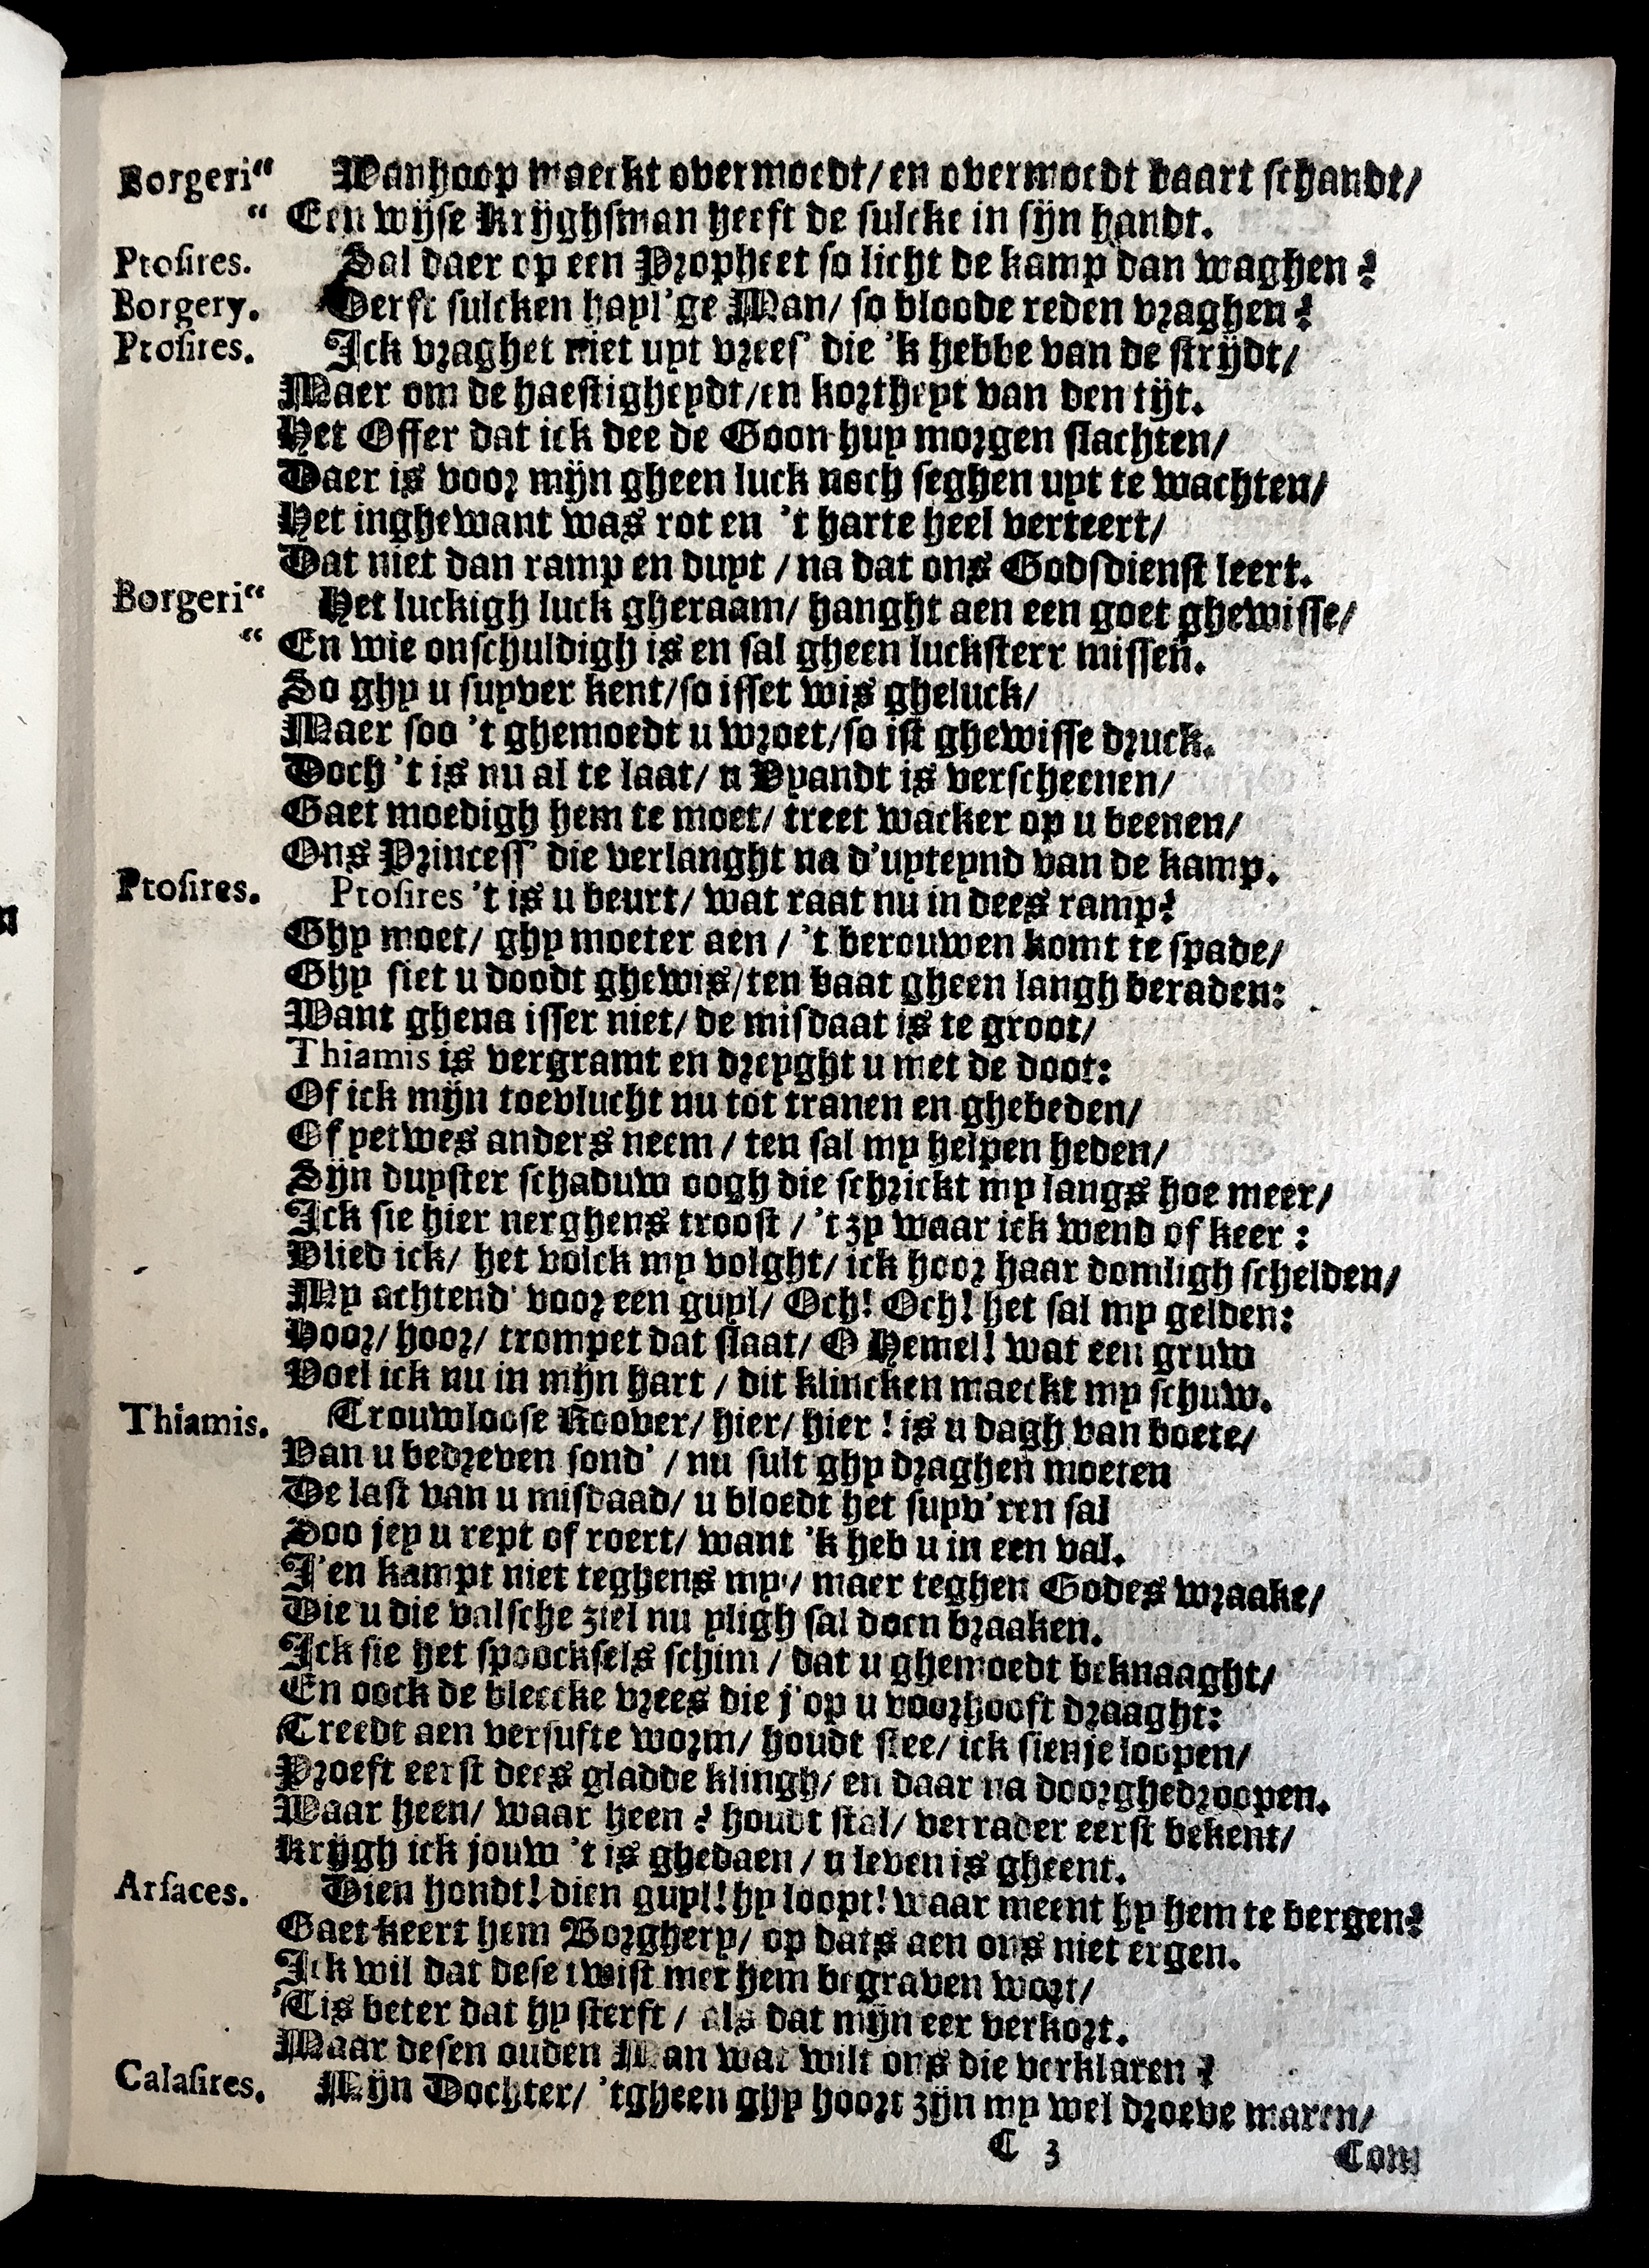 Borgeri“ Wanhoop maeckt overmoedt/ en overmoedt baart schandt/
“ Een wijse Krijghsman heeft de sulcke in sijn handt.
Ptosires. Sal daer op een Propheet so licht de kamp dan waghen?
Borgery. Derft sulcken hayl'ge Man/ so bloode reden vraghen?
Ptosires. Ick vraghet niet uyt vrees' die 'k hebbe van de strijdt/
Maer om de haestigheydt/ en kortheyt van den tijt.
Het Offer dat ick dee de Goon huy morgen slachten/
Daer is voor mijn gheen luck noch seghen uyt te wachten/
Het inghewant was rot en 't harte heel verteert/
Dat niet dan ramp en duyt / na dat ons Godsdienst leert.
Borgeri“ Het luckigh luck gheraam/ hanght aen een goet ghewisse/
“ En wie onschuldigh is en sal gheen lucksterr missen.
So ghy u suyver kent/ so isset wis gheluck/
Maer soo 't ghemoedt u wroet/ so ist ghewisse druck.
Doch 't is nu al te laat/ u Vyandt is verscheenen/
Gaet moedigh hem te moet/ treet wacker op u beenen/
Ons Princess' die verlanght na d'uyteynd van de kamp.
Ptosires. Ptosires 't is u beurt/ wat raat nu in dees ramp?
Ghy moet/ ghy moeter aen / 't berouwen komt te spade/
Ghy siet u doodt ghewis/ ten baat gheen langh beraden:
Want ghena isser niet/ de misdaat is te groot/
Thiamis is vergramt en dreyght u met de doot:
Of ick mijn toevlucht nu tot tranen en ghebeden/
Of yetwes anders neem / ten sal my helpen heden/
Sijn duyster schaduw oogh die schrickt my langs hoe meer/
Ick sie hier nerghens troost / 't zy waar ick wend of keer:
Vlied ick/ het volck my volght/ ick hoor haar domligh schelden/
My achtend' voor een guyl/ Och! Och! het sal my gelden:
Hoor/ hoor/ trompet dat slaat/ O Hemel! wat een gruw
Voel ick nu in mijn hart / dit klincken maeckt my schuw.
Thiamis. Trouwloose Roover/ hier/ hier! is u dagh van boete/
Van u bedreven sond' / nu sult ghy draghen moeten
De last van u misdaad/ u bloedt het suyv'ren sal
Soo jey u rept of roert/ want 'k heb u in een val.
J'en kampt niet teghens my/ maer teghen Godes wraake/
Die u die valsche ziel nu yligh sal doen braaken.
Ick sie het spoocksels schim / dat u ghemoedt beknaaght/
En oock de bleecke vrees die j'op u voorhooft draaght:
Treedt aen versufte worm/ houdt stee/ ick sienje loopen/
Proeft eerst dees gladde klingh/ en daar na doorghedroopen.
Waar heen/ waar heen? houdt stal/ verrader eerst bekent/
Krijgh ick jouw 't is ghedaen / u leven is gheent.
Arsaces. Dien hondt! dien guyl! hy loopt! waar meent hy hem te bergen?
Gaet keert hem Borghery/ op dats aen ons niet ergen.
Ick wil dat dese twist met hem begraven wort/
'Tis beter dat hy sterft / als dat mijn eer verkort.
Maar desen ouden Man wat wilt ons die verklaren?
Calasires. Mijn Dochter/ 'tgheen ghy hoort zijn my wel droeve maren/
C 3 Com